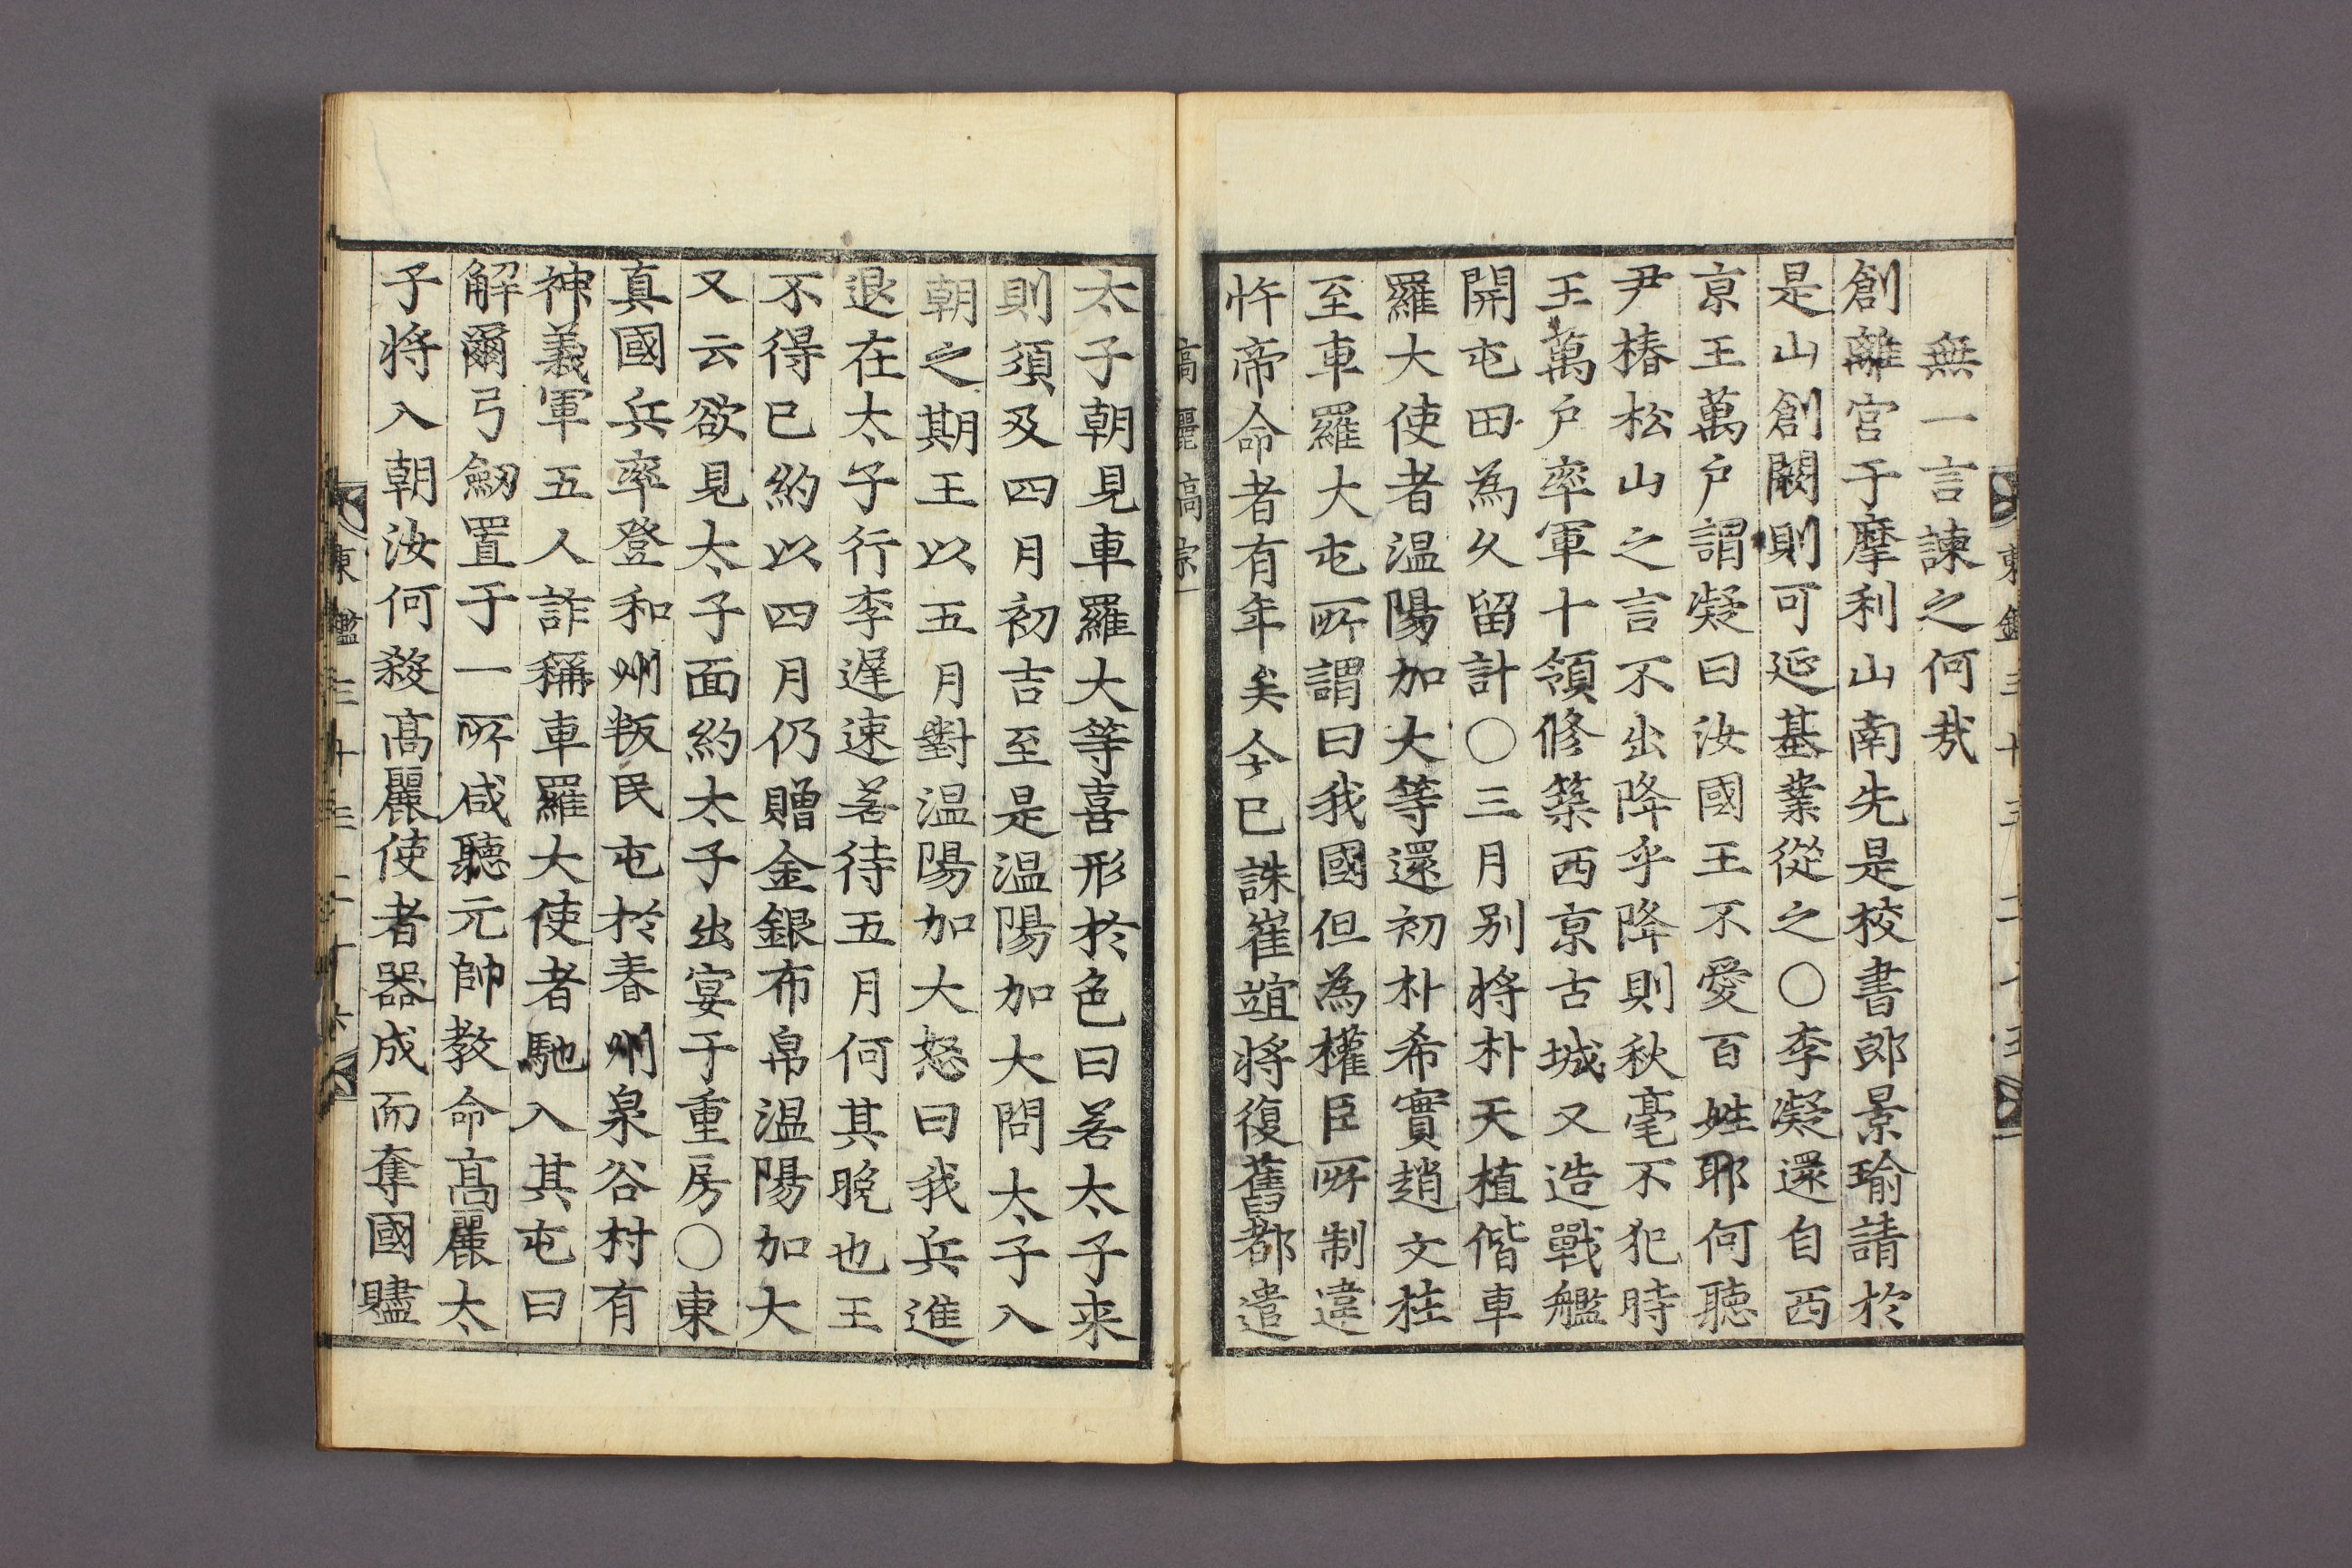 無一言諫之何㢤
創離宮于摩利山南先是校書郎景瑜請於
是山創闕則可延基業從之○李凝還自西
京王萬户謂凝曰汝國王不愛百姓耶何聽
尹椿松山之言不出降乎降則秋毫不犯時
王萬户率軍十領修築西京古城又造戰艦
開屯田為久留計○三月别將朴天植偕車
羅大使者温陽加大等還初朴希實趙文柱
至車羅大屯所謂曰我國但為權臣所制違
忤帝命者有年矣今已誅崔竩將復舊都遣
高麗高宗
太子朝見車羅大等喜形於色曰若太子来
則須及四月初吉至是温陽加大問太子入
朝之期王以五月對温陽加大怒曰我兵進
退在太子行李遅速若待五月何其晚也王
不得已約以四月仍贈金銀布帛温陽加大
又云欲見太子面約太子出宴于重房○東
真國兵率登和州叛民屯於春州泉谷村有
神義軍五人詐稱車羅大使者馳入其屯曰
解爾弓劒置于一所咸聽元帥教命高麗太
子将入朝汝何殺高麗使者器成而奪國贐
東鑑三十三 二十六